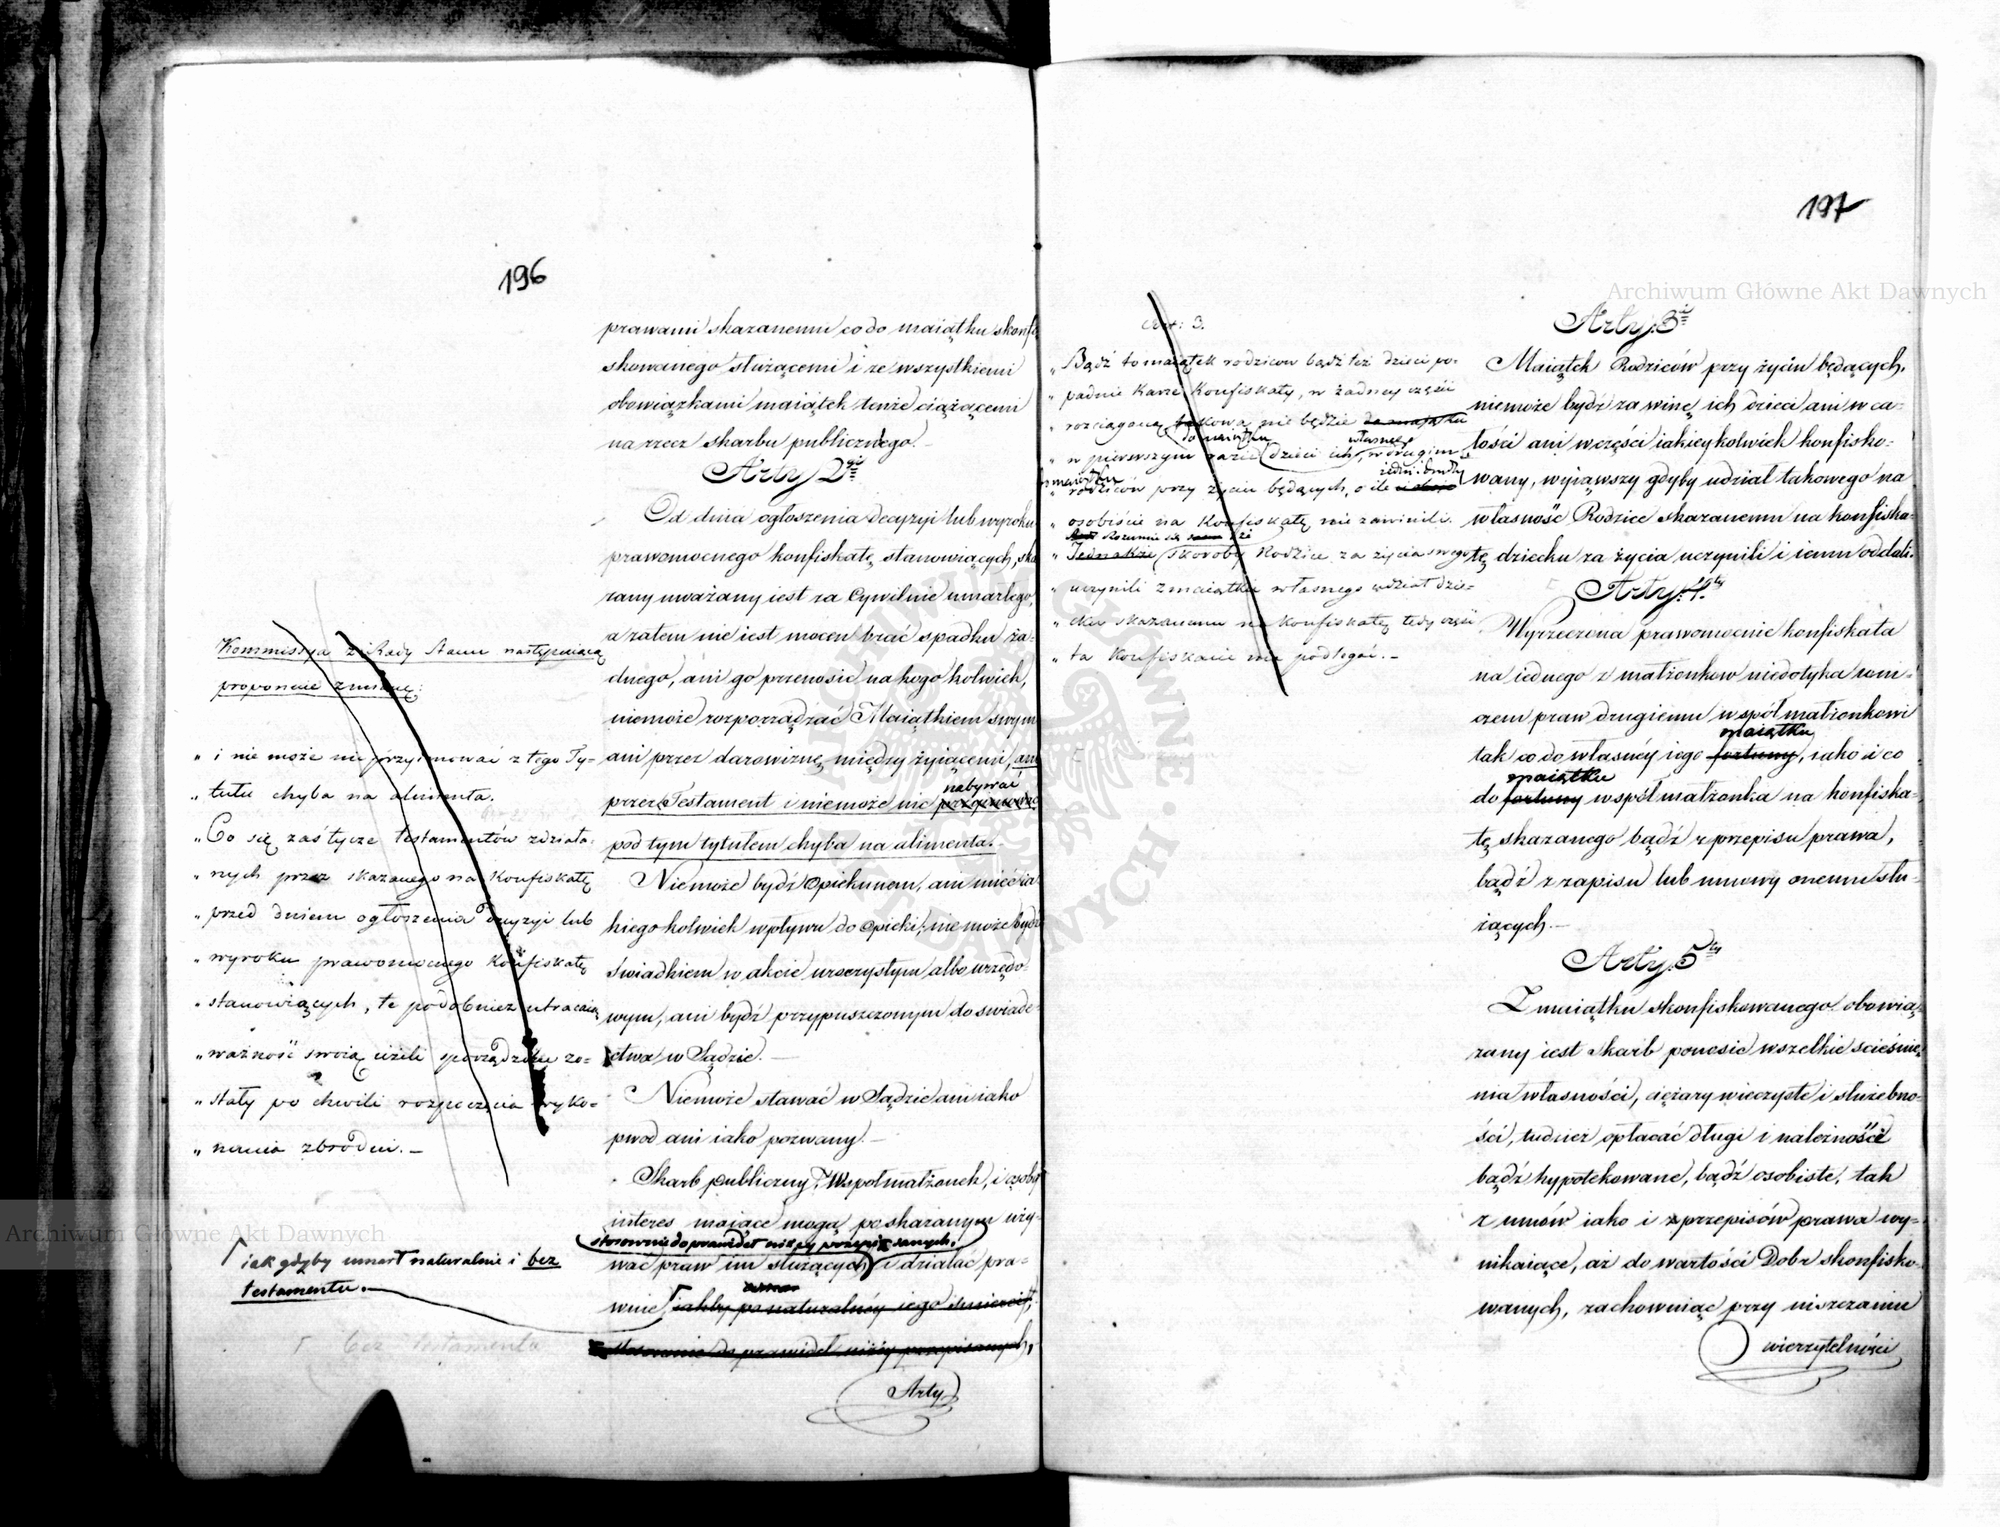 196
prawami skazanemu co do maiątku skonfi
skowanego służącemi i ze wszystkiemi
obowiązkami maiątek tenże ciążącemi
na rzecz skarbu publicznego.
Arty 2gi
Od dnia ogłoszenia Decyzyi lub wyroku
prawomocnego konfiskatę stanowiących, ska
zany uważany iest za Cywilnie umarłego,
a zatem nie iest mocen brać spadku ża-
dnego, ani go przenosić na kogokolwiek,
niemoże rozporządzać Maiątkiem swym
ani przez darowiznę między żyiącemi, ani
nabywać
przez Testament i niemoże nic przyimować
pod tym tytułem chyba na alimenta.
Niemoże bydź Opiekunem, ani mieć ia
kiegokolwiek wpływu do opieki; niemoże bydź
świadkiem w akcie uroczystym albo urzędo-
wym, ani bydź przypuszczonym do świade-
ctwa w Sądzie. —
Niemoże stawać w Sądzie ani iako
powod ani iako pozwany. —
Skarb publiczny, Współmałżonek, i osoby
interes maiące mogą po skazanym uży-
stosownie do prawideł niżey przepisanych.
wać praw im służących i działać pra-
wnie iakby po naturalnéy iego śmierci,
stosownie do prawideł niżéy przepisanych,
Arty
Kommissya z Rady Stanu następuiącą
proponuie zmianę:
„ i nie może nic przyimować z tego Ty-
„ tułu chyba na alimenta.
„ Co się zaś tycze testamentów zdziała-
„ nych przez skazanego na Konfiskatę
„ przed dniem ogłoszenia Decyzyi lub
„ wyroku prawomocnego Konfiskatę
„ stanowiących, te podobnież utracaią
„ ważność swoią ieżeli sporządzone zo-
„ stały po chwili rozpoczęcia wyko-
„ nania zbrodni. —
iak gdyby umarł naturalnie i bez
testamentu.
bez testamentu
197
Art: 3.
„ Bądź to maiątek rodziców bądź też dzieci po-
„ padnie Karze Konfiskaty, w żadney części
„ rozciąganą takowa nie będzie do maiątku
do maiątku własnego
„ w pierwszym razie dzieci ich, w drugim
maiątku iedni i drudzy
„ rodziców przy życiu będących, o ile
„ osobiście na Konfiskatę nie zawinili.
Rozumie się że
„ Jednakże skoroby Rodzice za życia swego
„ uczynili z maiątku własnego udział dzie-
„ cku skazanemu na konfiskatę tedy część
„ ta Konfiskacie ma podlegać. —
Arty. 3ci
Maiątek Rodziców przy życiu będących,
niemoże bydź za winę ich dzieci ani w ca-
łości ani w części iakieykolwiek konfisko-
wany, wyiąwszy gdyby udział takowego na
własność Rodzice skazanemu na konfiska-
tę dziecku za życia uczynili i iemu oddali.
Arty. 4ty
Wyrzeczona prawomocnie konfiskata
na iednego z małżonkow niedotyka w ni-
czem praw drugiemu współmałżonkowi
maiątku
tak co do własnéy iego fortuny, iako i co
maiątku
do fortuny współmałżonka na konfiska-
tę skazanego bądź z przepisu prawa,
bądź z zapisu lub umowy onemu słu-
żących. —
Arty. 5ty
Z maiątku skonfiskowanego obowią-
zany iest Skarb ponosić wszelkie ścieśnie-
nia własności, ciężary wieczyste i służebno-
ści, tudzież opłacać długi i należności
bądź hypotekowane, bądź osobiste, tak
z umów iako i z przepisów prawa wy-
nikaiące, aż do wartości Dobr skonfisko-
wanych, zachowuiąc przy uiszczaniu
wierzytelności
Archiwum Główne Akt Dawnych
Archiwum Główne Akt Dawnych